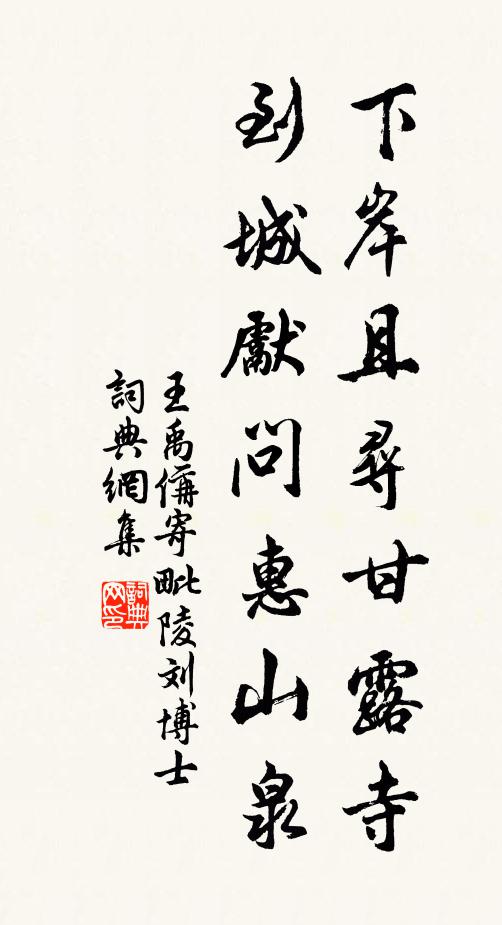 下岸且尋甘露寺
到城獻問惠山泉
王禹偁寄毗陵刘博士
詞典網集
詞典网印